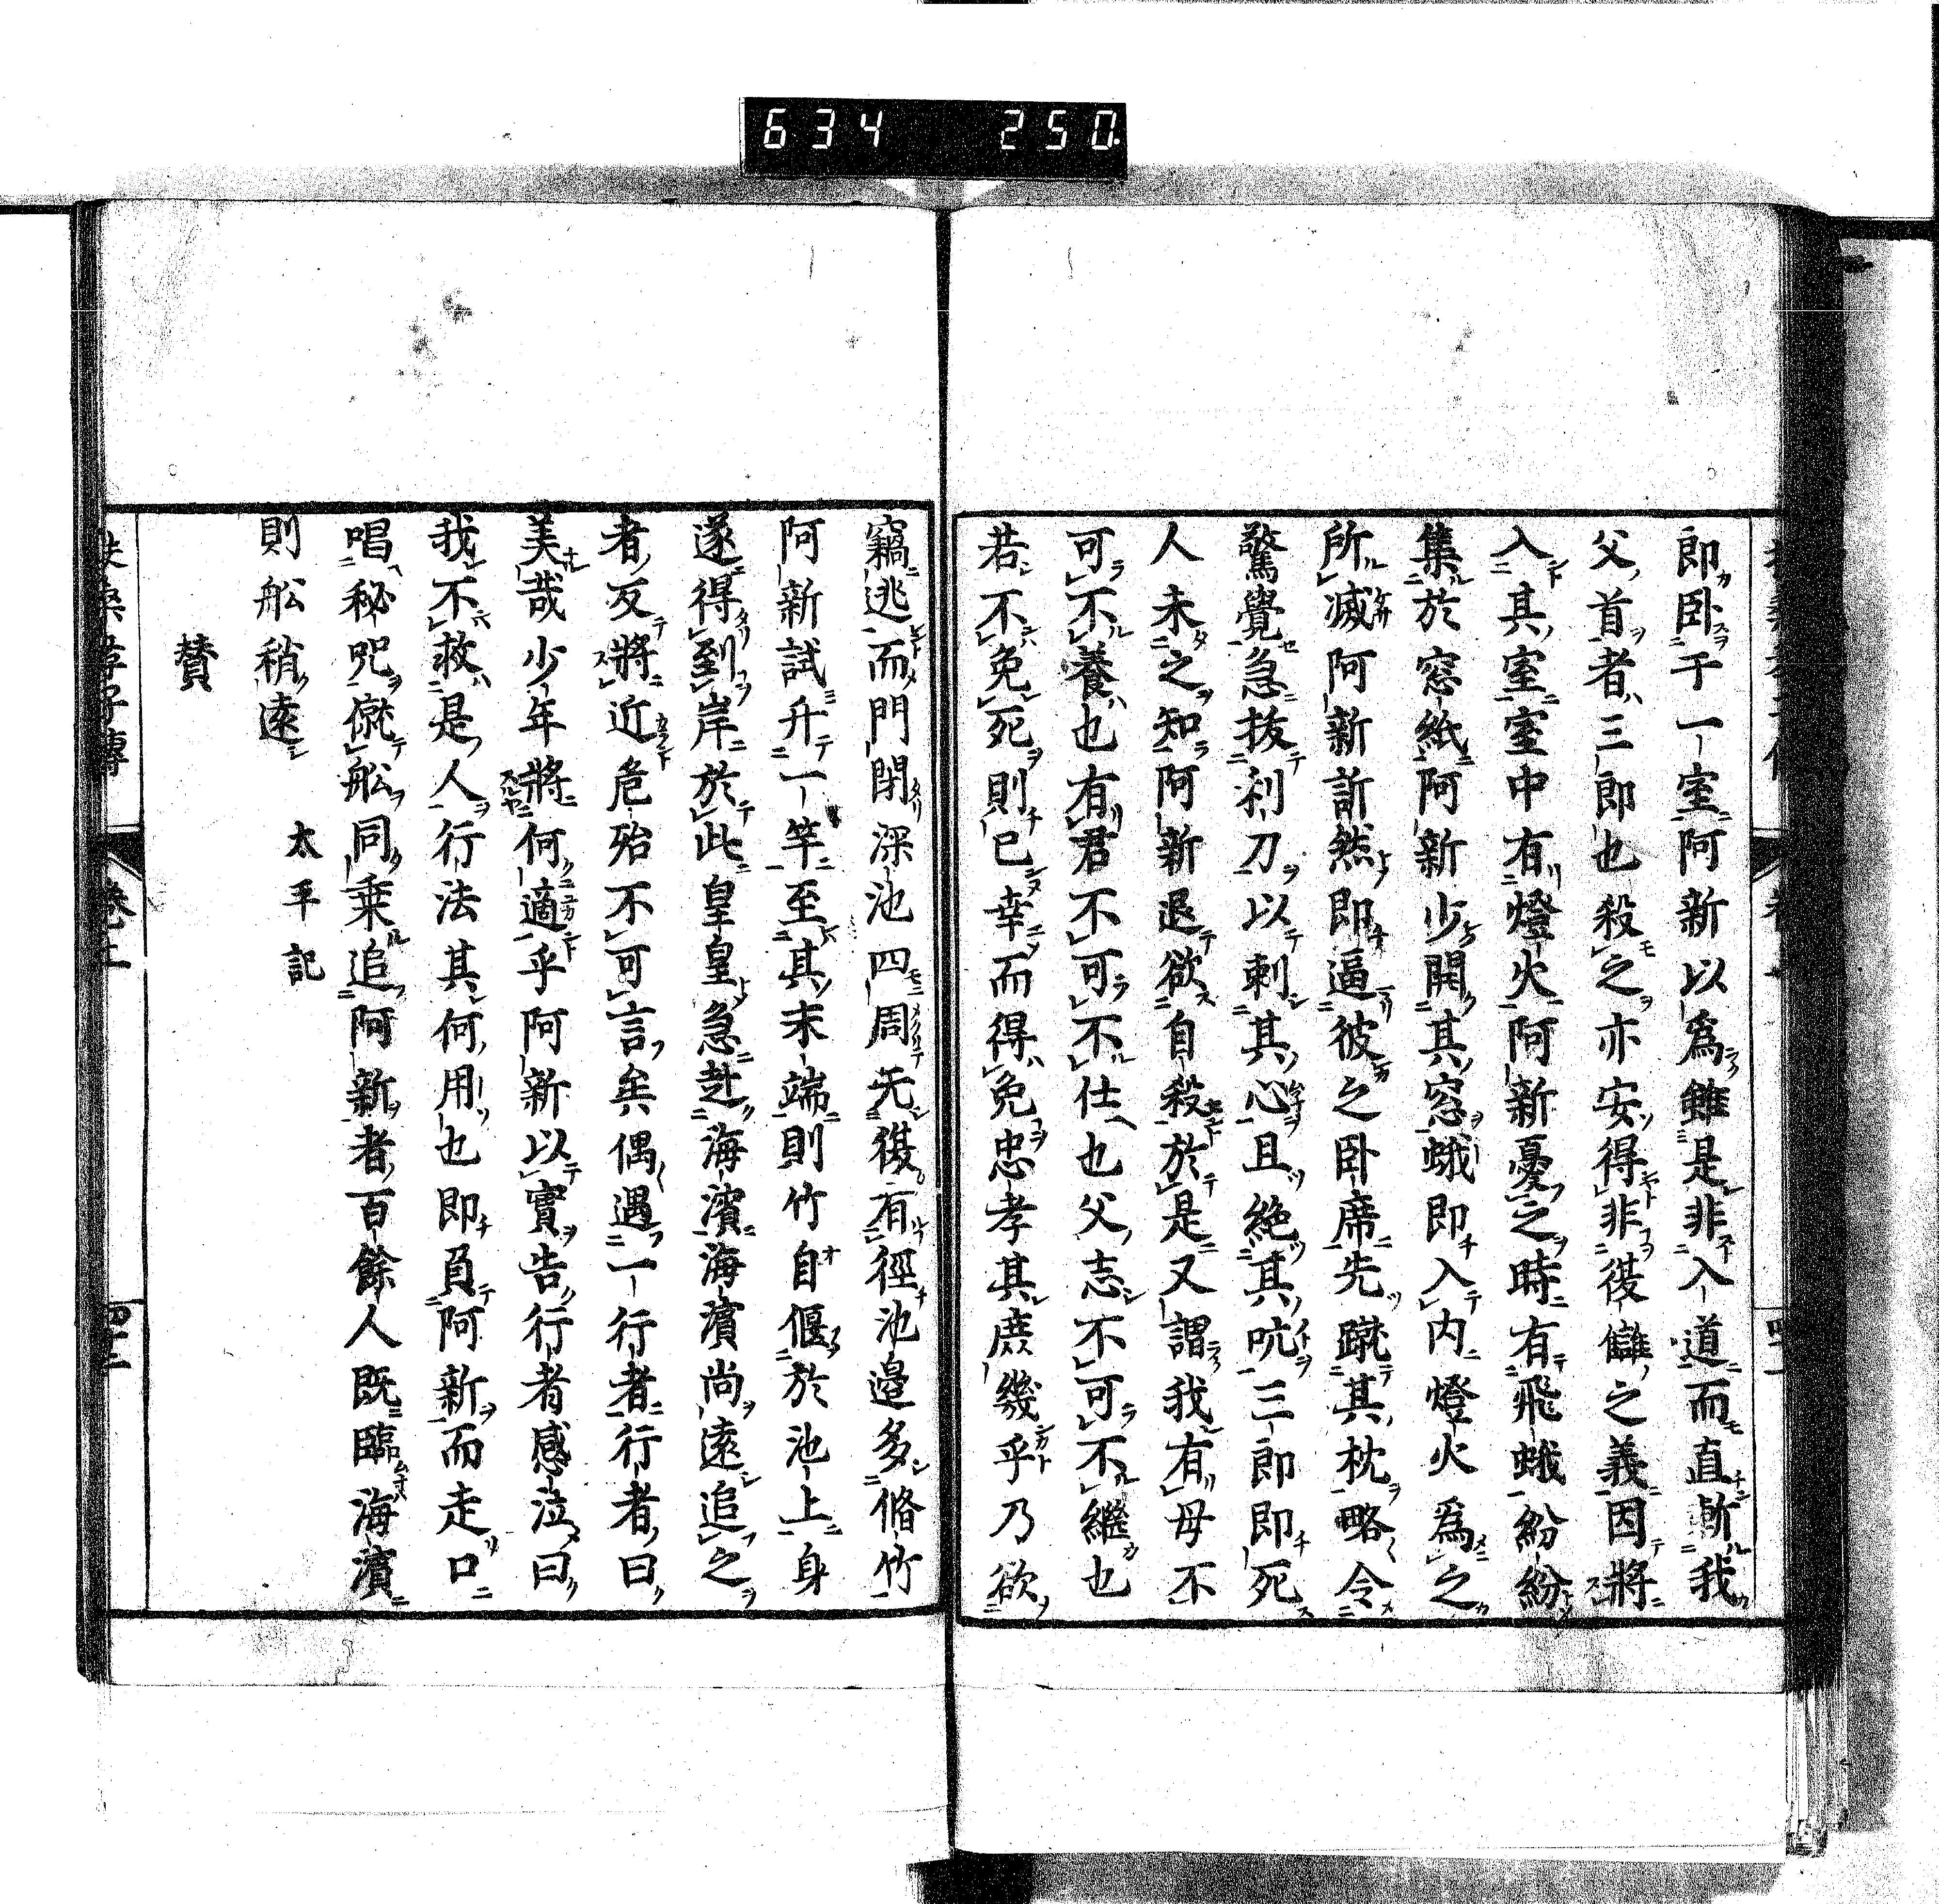 634 250
即臥于一室阿新以爲雖是非入道而直斬我
父首者三郎也殺之亦安得非復讎之義因將
入其室室中有燈火阿新憂之時有飛蛾紛紛
集於窓紙阿新少開其窓蛾即入内燈火爲之
所滅阿新訢然即逼彼之卧席先蹴其枕略令
驚覺急拔利刀以刺其心且絶其吭三郎即死
人未之知阿新退欲自殺於是又謂我有母不
可不養也有君不可不仕也父志不可不繼也
若不免死則已幸而得免忠孝其庶幾乎乃欲
竊逃而門閉深池四周无復有徑池邉多脩竹
阿新試升一竿至其末端則竹自偃於池上身
遂得到岸於此皇皇急赴海濱海濱尚遠追之
者反將近危殆不可言矣偶遇一行者行者曰
美哉少年將何適乎阿新以實告行者感泣曰
我不救是人行法其何用也即負阿新而走口
唱秘咒僦船同乗追阿新者百餘人既臨海濱
則船稍遠 太平記
賛
扶桑孝子傳 卷上 四十二